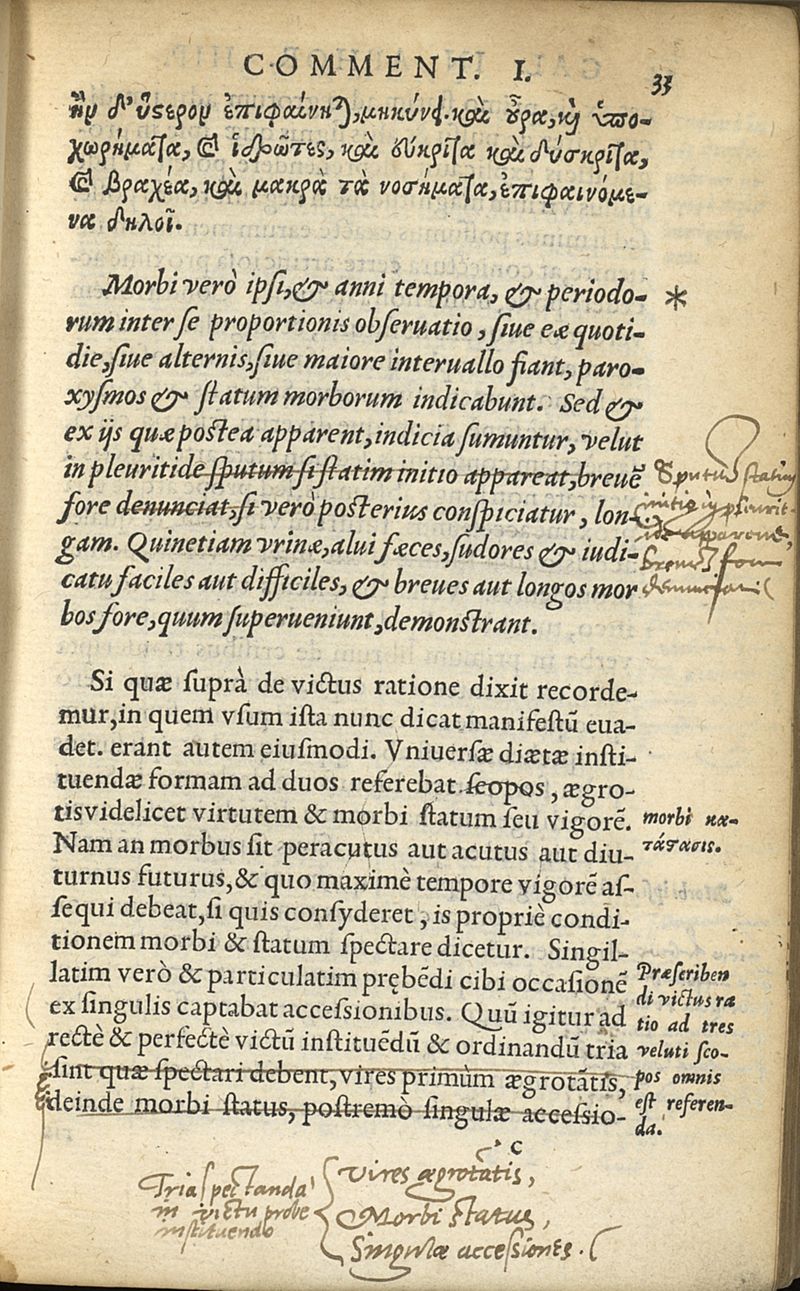 COMMENT. I. 33
ἢν δ' ὕστερον ἐπιφαίνηται, μηκύνει. καὶ οὖρα, καὶ ὑπο-
χωρήματα, καὶ ἱδρῶτες, καὶ εὔκριτα καὶ δύσκριτα,
καὶ βραχέα, καὶ μακρὰ τὰ νοσήματα, ἐπιφαινόμε-
να δηλοῖ.
Morbi verò ipsi, & anni tempora, & periodo- *
rum inter se proportionis obseruatio, siue eæ quoti-
die, siue alternis, siue maiore interuallo fiant, paro-
xysmos & statum morborum indicabunt. Sed &
ex ijs quæ postea apparent, indicia sumuntur, velut
in pleuritide sputum si statim initio appareat, breuē
fore denunciat, si verò posterius conspiciatur, lon-
gam. Quinetiam vrinæ, alui fæces, sudores & iudi-
catu faciles aut difficiles, & breues aut longos mor
bos fore, quum superueniunt, demonstrant.
Sputū statim
initio in pleurit-
ide apparens,
breuē fore
denunciat
Si quæ suprà de victus ratione dixit recorde-
mur, in quem vsum ista nunc dicat manifestū eua-
det. erant autem eiusmodi. Vniuersæ diætæ insti-
tuendæ formam ad duos referebat scopos, ægro-
tis videlicet virtutem & morbi statum seu vigorē.
Nam an morbus sit peracutus aut acutus aut diu-
turnus futurus, & quo maximè tempore vigorē as-
sequi debeat, si quis consyderet, is propriè condi-
tionem morbi & statum spectare dicetur. Singil-
latim verò & particulatim prębēdi cibi occasionē
ex singulis captabat accessionibus. Quū igitur ad
rectè & perfectè victū instituēdū & ordinandū tria
sint quæ spectari debent, vires primùm ægrotātis,
deinde morbi status, postremò singulæ accessio-
morbi κα-
τάστασις.
Præscriben
di victus ra
tio ad tres
veluti sco-
pos omnis
est referen-
da.
C
Tria spectanda
in victu probe
instituendo
Vires ægrotātis,
Morbi status,
Singulæ accessiones.